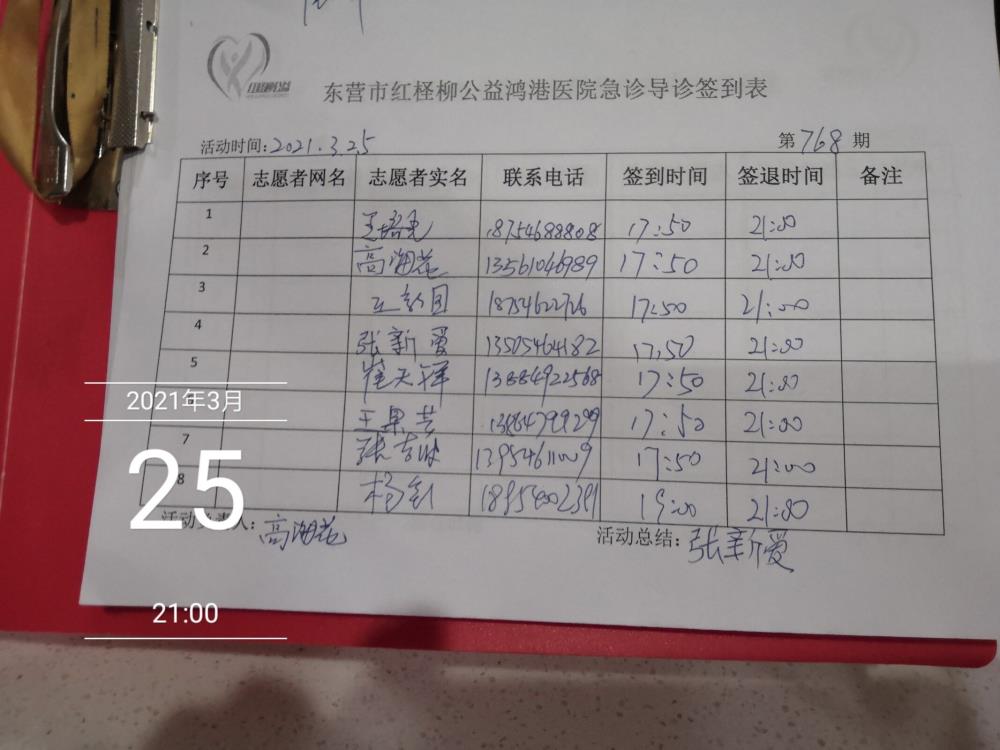 红柽柳公益
东营市红柽柳公益鸿港医院急诊导诊签到表
活动时间:2021.3.25 第768期
序号 志愿者网名 志愿者实名 联系电话 签到时间 签退时间 备注
1 18754688808 17:50 21:00
2 高湘花 13561046989 17:50 21:00
3 17:50 21:00
4 张新爱 13505464182 17:50 21:00
5 崔天祥 13884922568 17:50 21:00
王果芸 17:50 21:00
7 17:50 21:00
8 21:00
活动负责人:高湘花 活动总结:张新爱
2021年3月
25
21:00